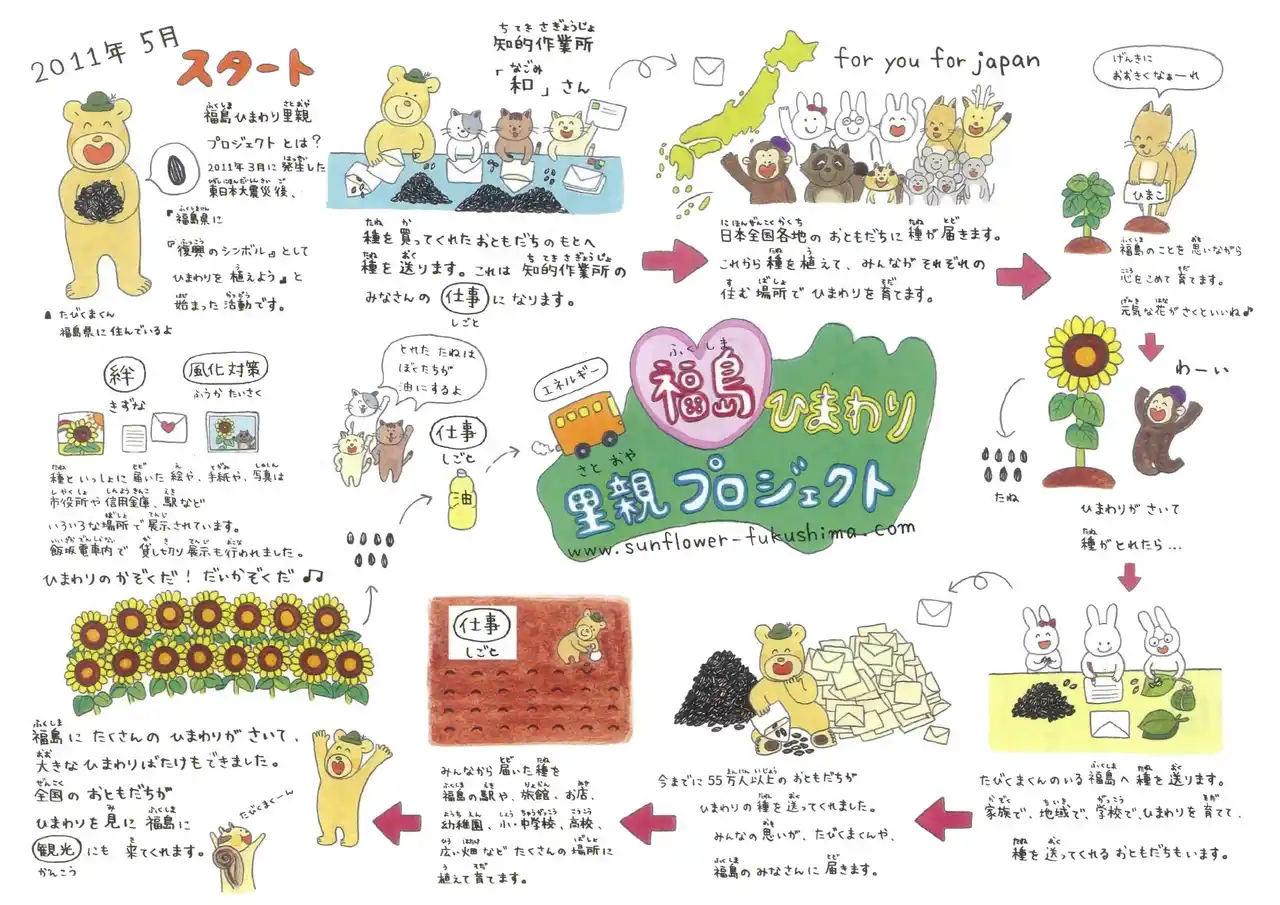 2011年 5月
スタート
福島ひまわり里親
プロジェクトとは？
2011年3月に発生した
東日本大震災後、
『福島県に
『復興のシンボル』として
ひまわりを植えよう』と
始まった活動です。
たびくまくん
福島県に住んでいるよ
ちてきさぎょうじょ
知的作業所
なごみ
「和」さん
種を買ってくれたおともだちのもとへ
種を送ります。これは知的作業所の
みなさんの仕事になります。
しごと
for you for japan
日本全国各地のおともだちに種が届きます。
これから種を植えて、みんながそれぞれの
住む場所でひまわりを育てます。
げんきに
おおきくなぁーれ
ひまこ
福島のことを思いながら
心をこめて育てます。
元気な花がさくといいね♪
わーい
たね
ひまわりがさいて
種がとれたら…
たびくまくんのいる福島へ種を送ります。
家族で、地域で、学校でひまわりを育て、
種を送ってくれるおともだちもいます。
今までに55万人以上のおともだちが
ひまわりの種を送ってくれました。
みんなの思いが、たびくまくんや、
福島のみなさんに届きます。
仕事
しごと
みんなから届いた種を
福島の駅や、旅館、お店、
幼稚園、小・中学校、高校、
広い畑などたくさんの場所に
植えて育てます。
福島にたくさんのひまわりがさいて、
大きなひまわりばたけもできました。
全国のおともだちが
ひまわりを見に福島に
観光にも来てくれます。
かんこう
たびくまくーん
絆
きずな
風化対策
ふうかたいさく
種といっしょに届いた絵や、手紙や、写真は
市役所や信用金庫、駅など
いろいろな場所で展示されています。
飯坂電車内で貸し切り展示も行われました。
ひまわりのかぞくだ！だいかぞくだ♫
とれたたねは
ぼくたちが
油にするよ
仕事
しごと
油
エネルギー
ふくしま
福島ひまわり
さとおや
里親プロジェクト
www.sunflower-fukushima.com